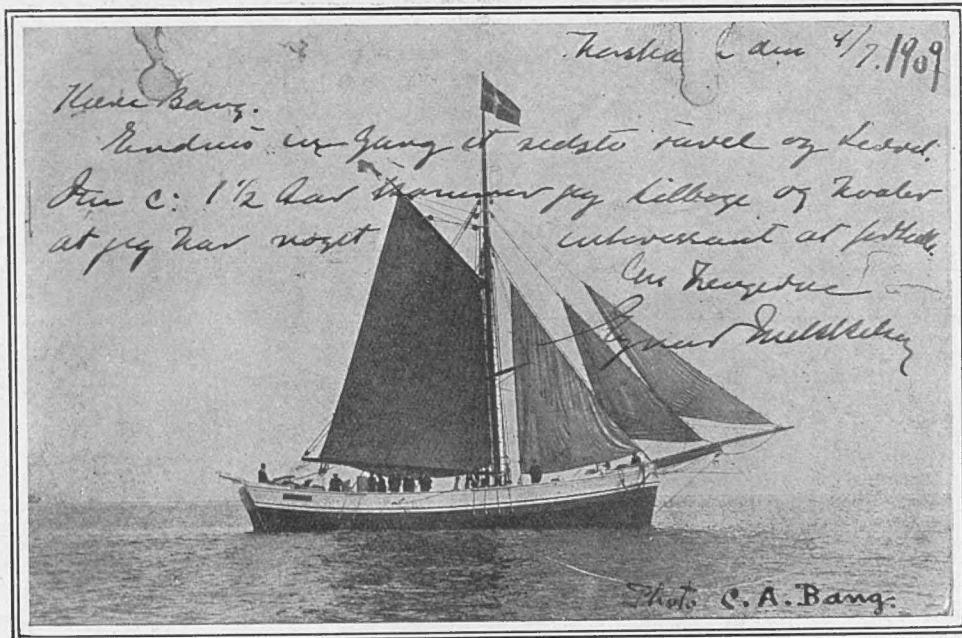 Thorshavn den 4/7. 1909
Kære Bang.
Endnu en Gang et sidste Farvel og
Om c: 1 1/2 Aar kommer jeg tilbage og haaber
at jeg har noget interessant at fortælle.
Din hengivne
Ejnar Mikkelsen
Photo C. A. Bang.